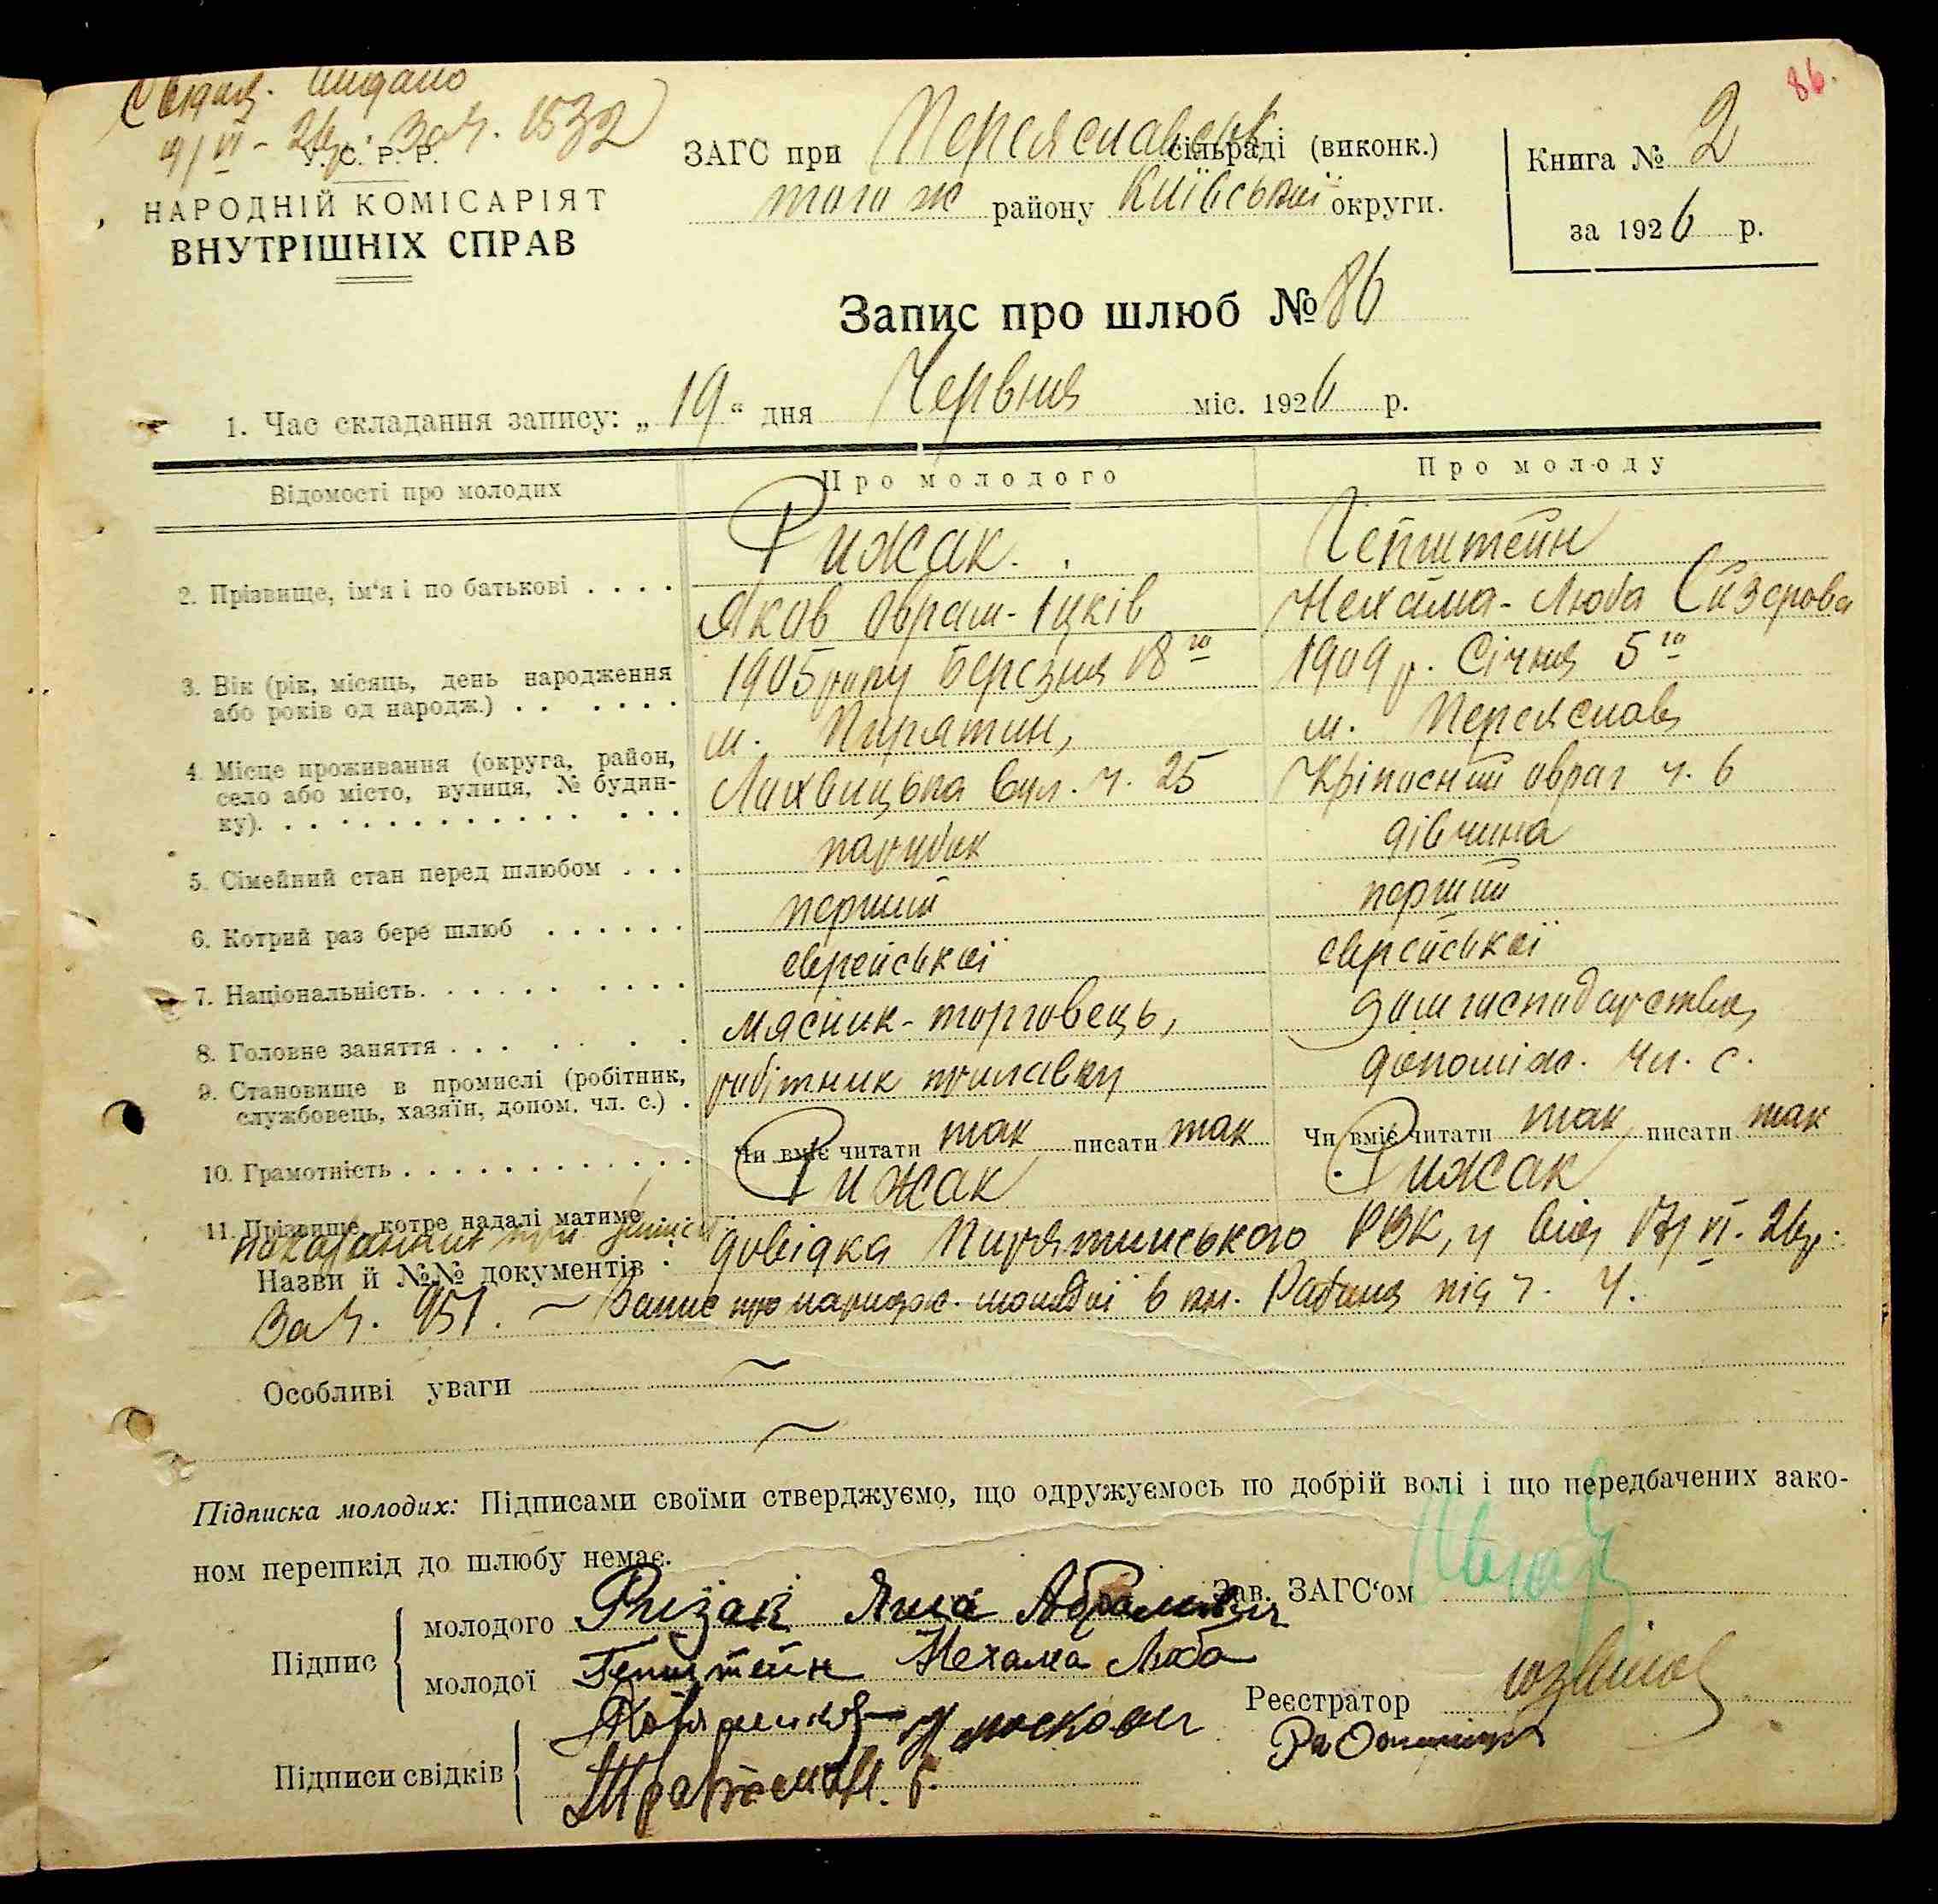 видано
86.
за ч. 1532
У. С. Р. Р.
НАРОДНІЙ КОМІСАРІЯТ
ВНУТРІШНІХ СПРАВ
ЗАГС при Переяславськ сільраді (виконк.)
того ж району Київської округи.
Книга № 2
за 1926 р.
Запис про шлюб № 86
1. Час складання запису: „19“ дня Червня міс. 1926 р.
Відомості про молодих
Про молодого
Про молоду
2. Прізвище, ім'я і по батькові . . . .
Рижак.
Яков Овраш-Іцків
Гепштейн
Нехама-Люба Сйзерова
3. Вік (рік, місяць, день народження
або років од народж.) . . . . . .
1905 року Березня 18го
1909 р. Січня 5го
4. Місце проживання (округа, район,
село або місто, вулиця, № будин-
ку). . . . . . . . . . . . . . . .
м. Пирятин,
Лохвицька вул. ч. 25
м. Переяслав
Кріпосний овраг ч. 6
5. Сімейний стан перед шлюбом . . .
парубок
дівчина
6. Котрий раз бере шлюб . . . . . .
перший
перший
7. Національність. . . . . . . . . .
єврейської
єврейської
8. Головне заняття . . . . . . .
мясник-торговець,
дом господарство,
9. Становище в промислі (робітник,
службовець, хазяїн, допом. чл. с.) .
робітник прилавку
допоміж. чл. с.
10. Грамотність . . . . . . . . . . . .
Чи вміє читати так писати так
Чи вміє читати так писати так
11. Прізвище, котре надалі матиме
Рижак
Рижак
Назви й №№ документів
довідка Пирятинського РВК, у від 17/VI. 26р.
За ч. 951. ~ Запис про народж. молодої в кн. Рабина під ч. 4.
Особливі уваги ~
~
Підписка молодих: Підписами своїми стверджуємо, що одружуємось по добрій волі і що передбачених зако-
ном перешкід до шлюбу немає.
Зав. ЗАГС‘ом
Підпис
молодого Ризак Яша Абрамович
молодої Гепштейн Нехама Люба
Реєстратор
Підписи свідків